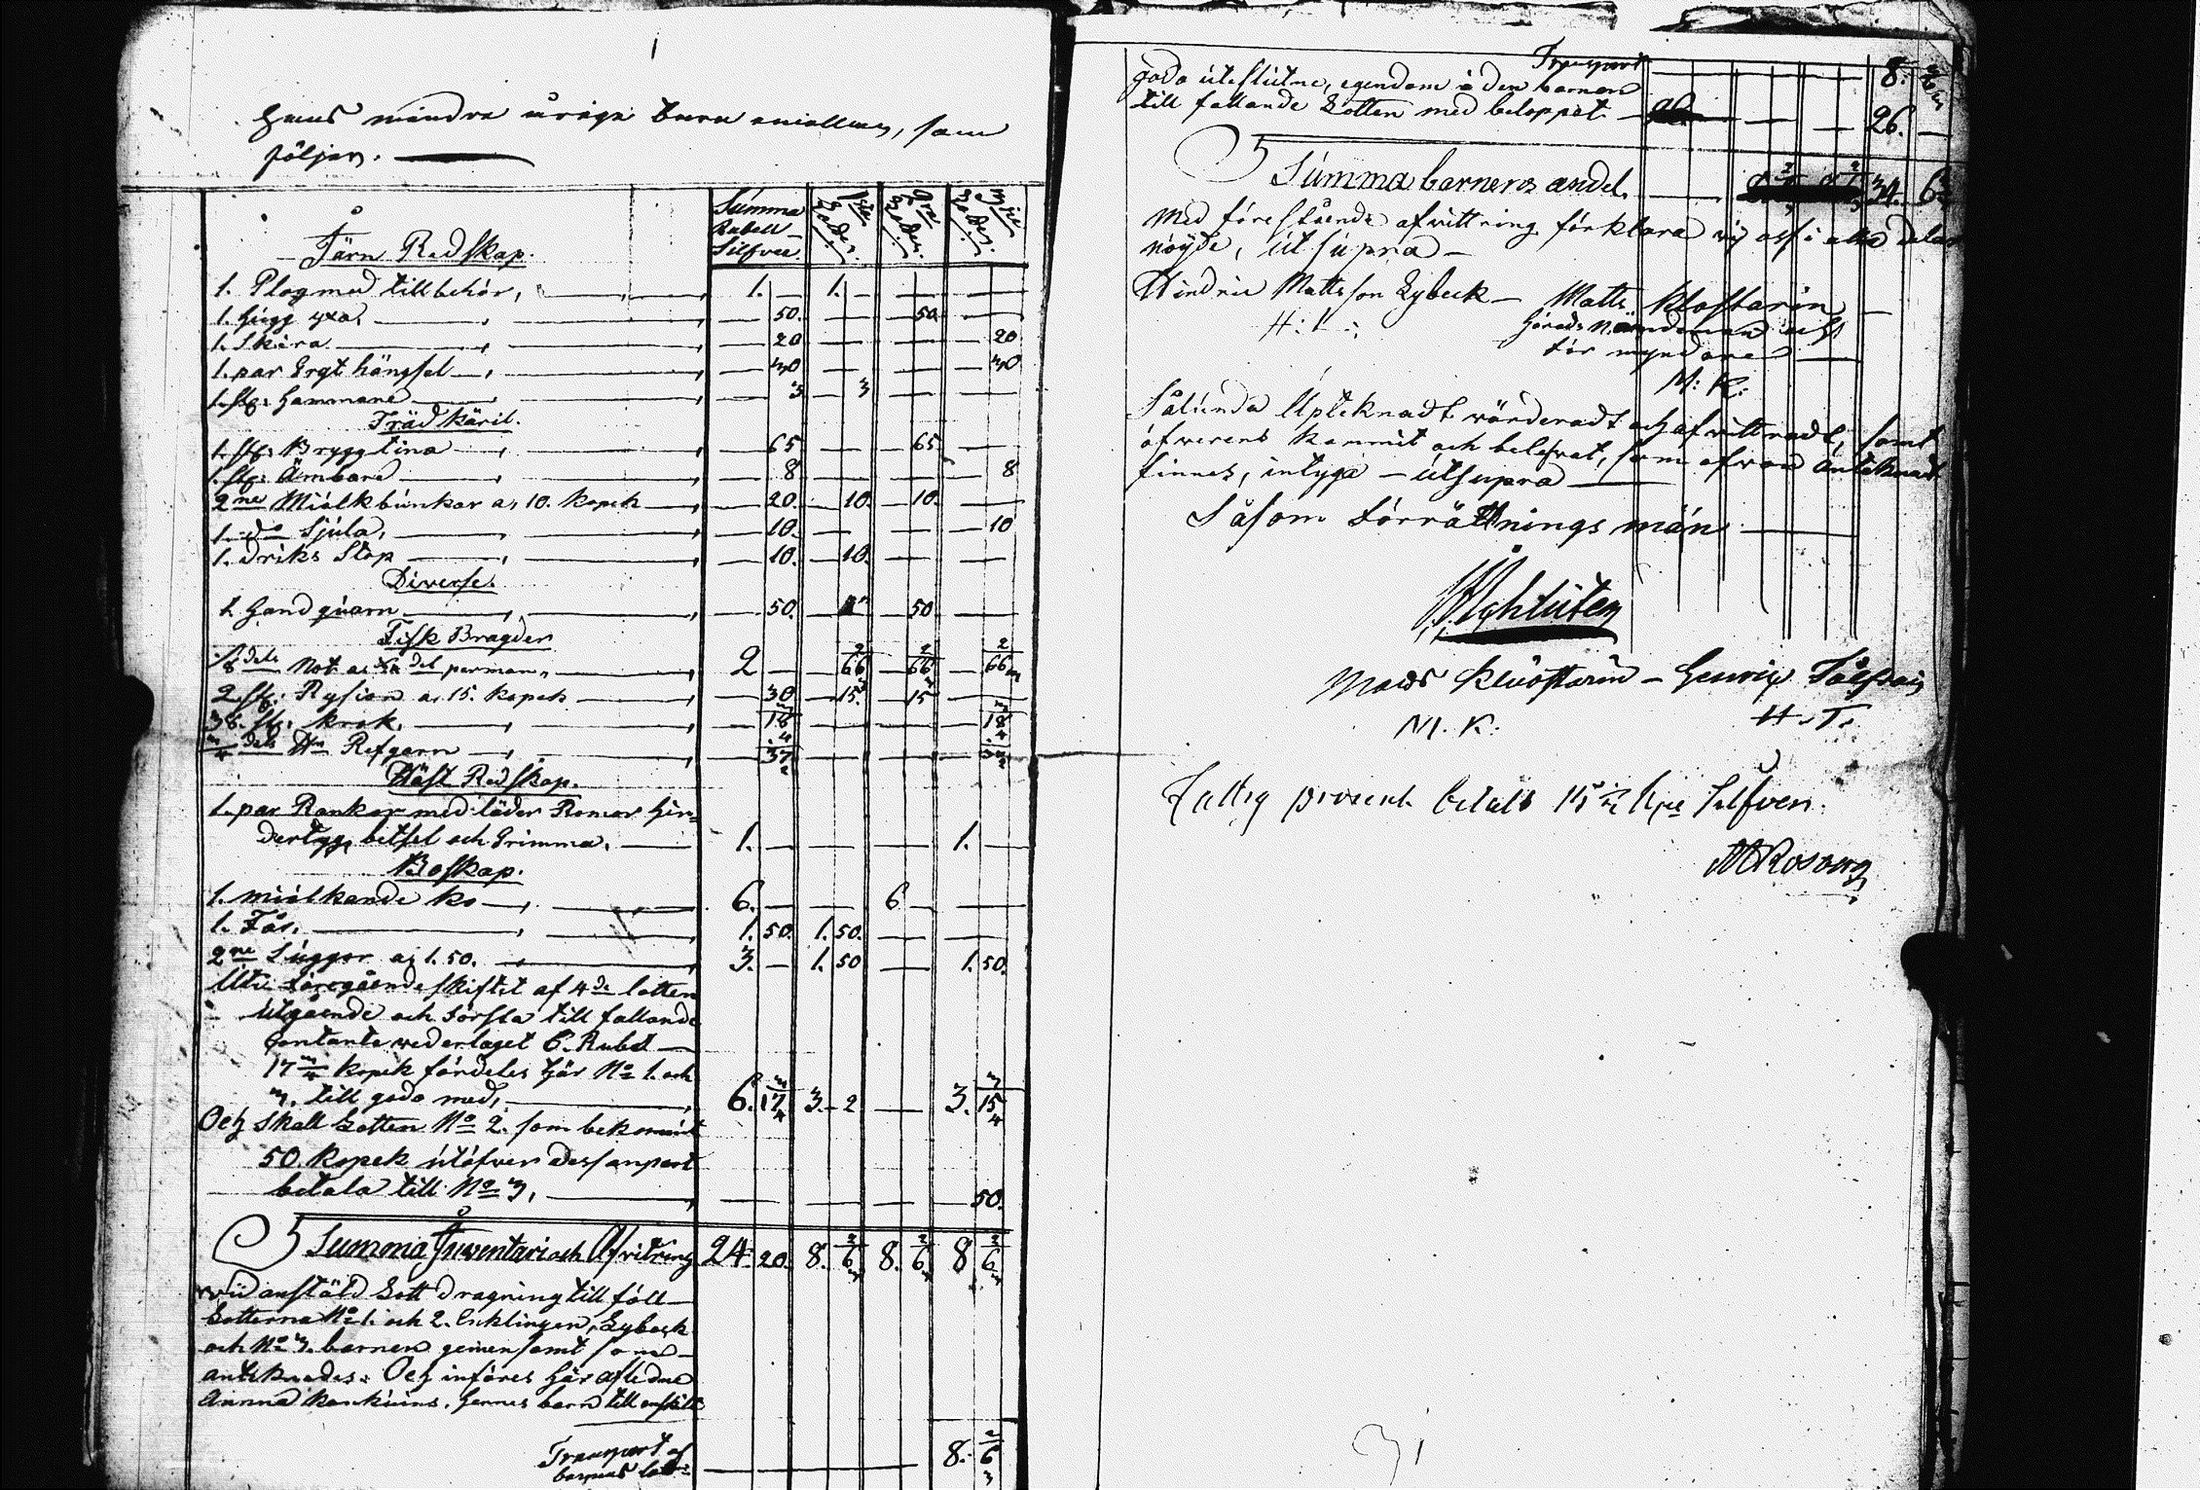 hans mindre åriga barn emellan, som
följer.
Summa Rubell Silfver. 1sta Lotten. 2dra Lotten. 3die Lotten.
Järn Redskap.
1. Plog med tillbehör, 1. — 1. —
1. hugg yxa, 50. 50.
1. Skära 20 20
1. par Ergt hängsel 30 30
1. st: hammare 3 3
Träd Käril.
1. st: Brygg tina 65 65
1. st: Ämbare 8 8
2ne Miölkbunkar a, 10. kopek 20. 10. 10.
1. do Sjula, 10. 10
1. driks Stop 10. 10.
Diverse.
1. hand quarn 50. 50
Fisk Bragder
Not 2 66 2/3 66 2/3 66 2/3
2. st: Rysior a, 15. kopek 30 15. 15
36. st: krok, 18 18
3/4 dels Refgarn
Häst Redskap.
1. par Rankor med läder Remor hin=
dertyg, betsel och Grimma, 1. 1.
Boskap.
1. miölkande ko 6. 6
1. Får, 1. 50. 1. 50.
2ne Suggor a, 1. 50. 3. — 1. 50 1. 50.
Uti föregående skiftet af 4de lotten
utgående och första till fallande
Contante vederlaget 6. Rubel
17 3/4 kopek fördeles här No 1. och
3. till godo med, 6. 17 3/4 3. 2 3. 15 3/4
Och skall Lotten No 2. som bekommit
50. kopek utöfver dess anpart
betala till No 3, 50.
Summa Inventari och Afvitring 24. 20. 8. 6 2/3 8. 6 2/3 8 6 2/3
vid anstäld Lott dragning till föll
Lotterna No 1. och 2. Enklingen Lybeck
och No 3. barnen gemensamt som
anteknades. Och införes här afledne
Anna hennes barn till
Transport af
barnens lott 8. 6 2/3
Transport 8. 6 2/3
godo uteslutne, egendom å den barnen
till fallande Lotten med beloppet 26. —
Summa barnens andel. 34. 6 2/3
Med förestående afvittring förklara vij oss i alla delar
nöyde, Ut supra —
Hindric Mattsson Lybeck — Matts Klåstarin
H: L: härads Nämdeman och
förmyndare
M: K:
Sålunda Upteknadt värderadt och afvittradt, samt
öfverens kommit och belefvat, som ofvan Anteknadt
finnes, intyga — utsupra
Såsom Förrättnings män
Åhlüten
Mats Klåstarin — Henrix
M. K: H. T.
Fattig procent betalt 15 Kpe Silfver.